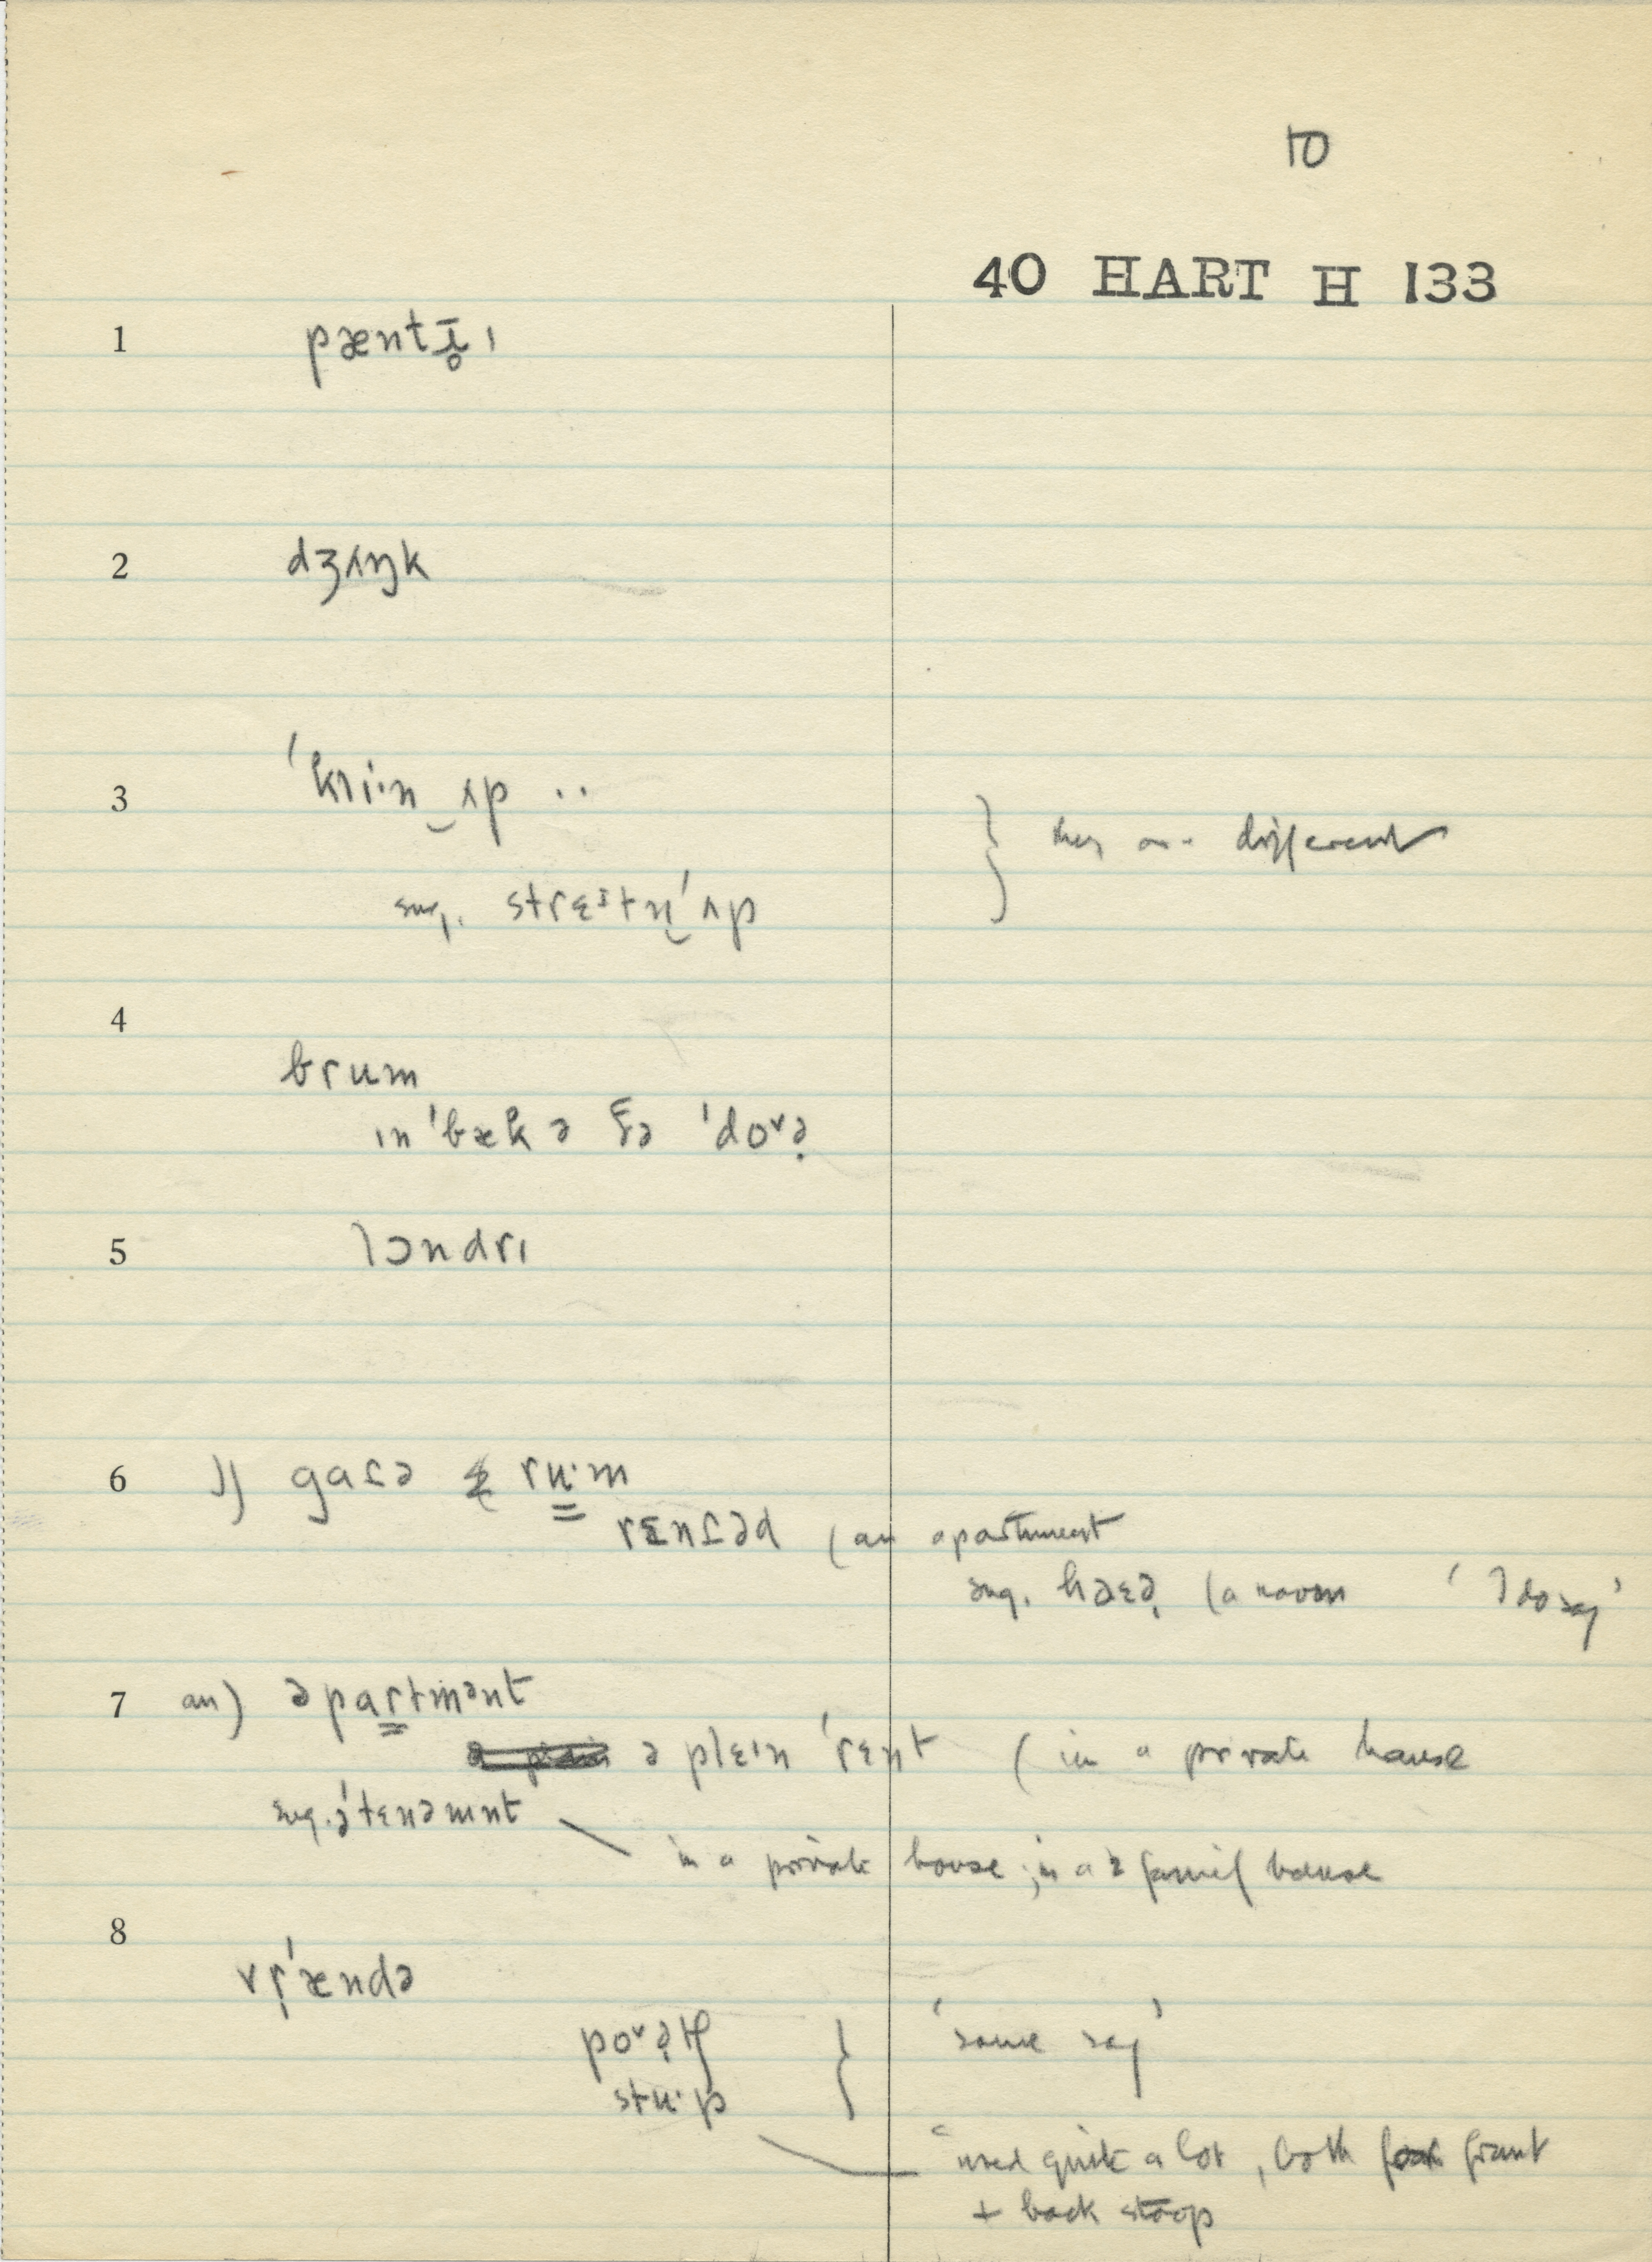 10
40 HART H 133
1 pæntɪ̵̥ ɪ
2 dʒʌŋk
3 ˈkliˑn‿ʌp ··
} they are different
sug. strɛɪtn̩ˈʌp
4
brum
ɪnˈbæk ə ðə ˈdoᵛə̣
5 lɔndrɪ
6 gaɾə ruˑm
rɛnɾəd (an apartment
sug. haɛə̣ (a room ' I do say'
7 an) əpartmənt
ə plɛɪn ˈrɛnt ( in a private house
sug. əˈtɛnəmnt
in a private house ; in a 2 family house
8
vrˈændə
poᵛə̣tʃ } 'some say'
stuˑp
used quite a lot, both front
+ back stoop